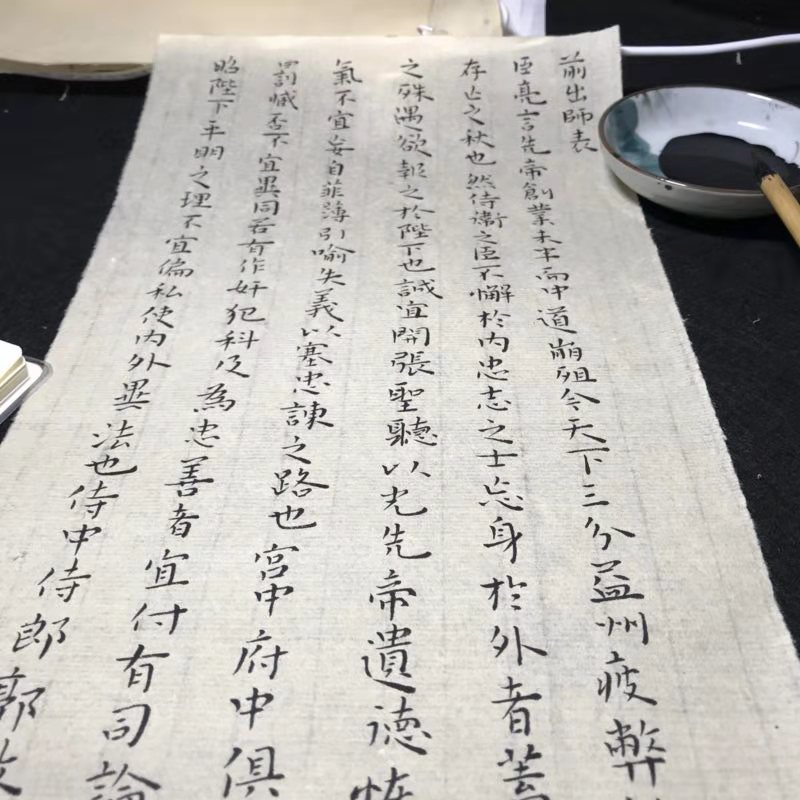 前出師表
臣亮言先帝創業未半而中道崩殂今天下三分益州疲弊
存亡之秋也然侍衛之臣不懈於内忠志之士忘身於外者蓋
之殊遇欲報之於陛下也誠宜開張聖聽以光先帝遺德恢
氣不宜妄自菲薄引喻失義以塞忠諫之路也宮中府中俱
罰臧否不宜異同若有作奸犯科及為忠善者宜付有司論
昭陛下平明之理不宜偏私使内外異法也侍中侍郎郭